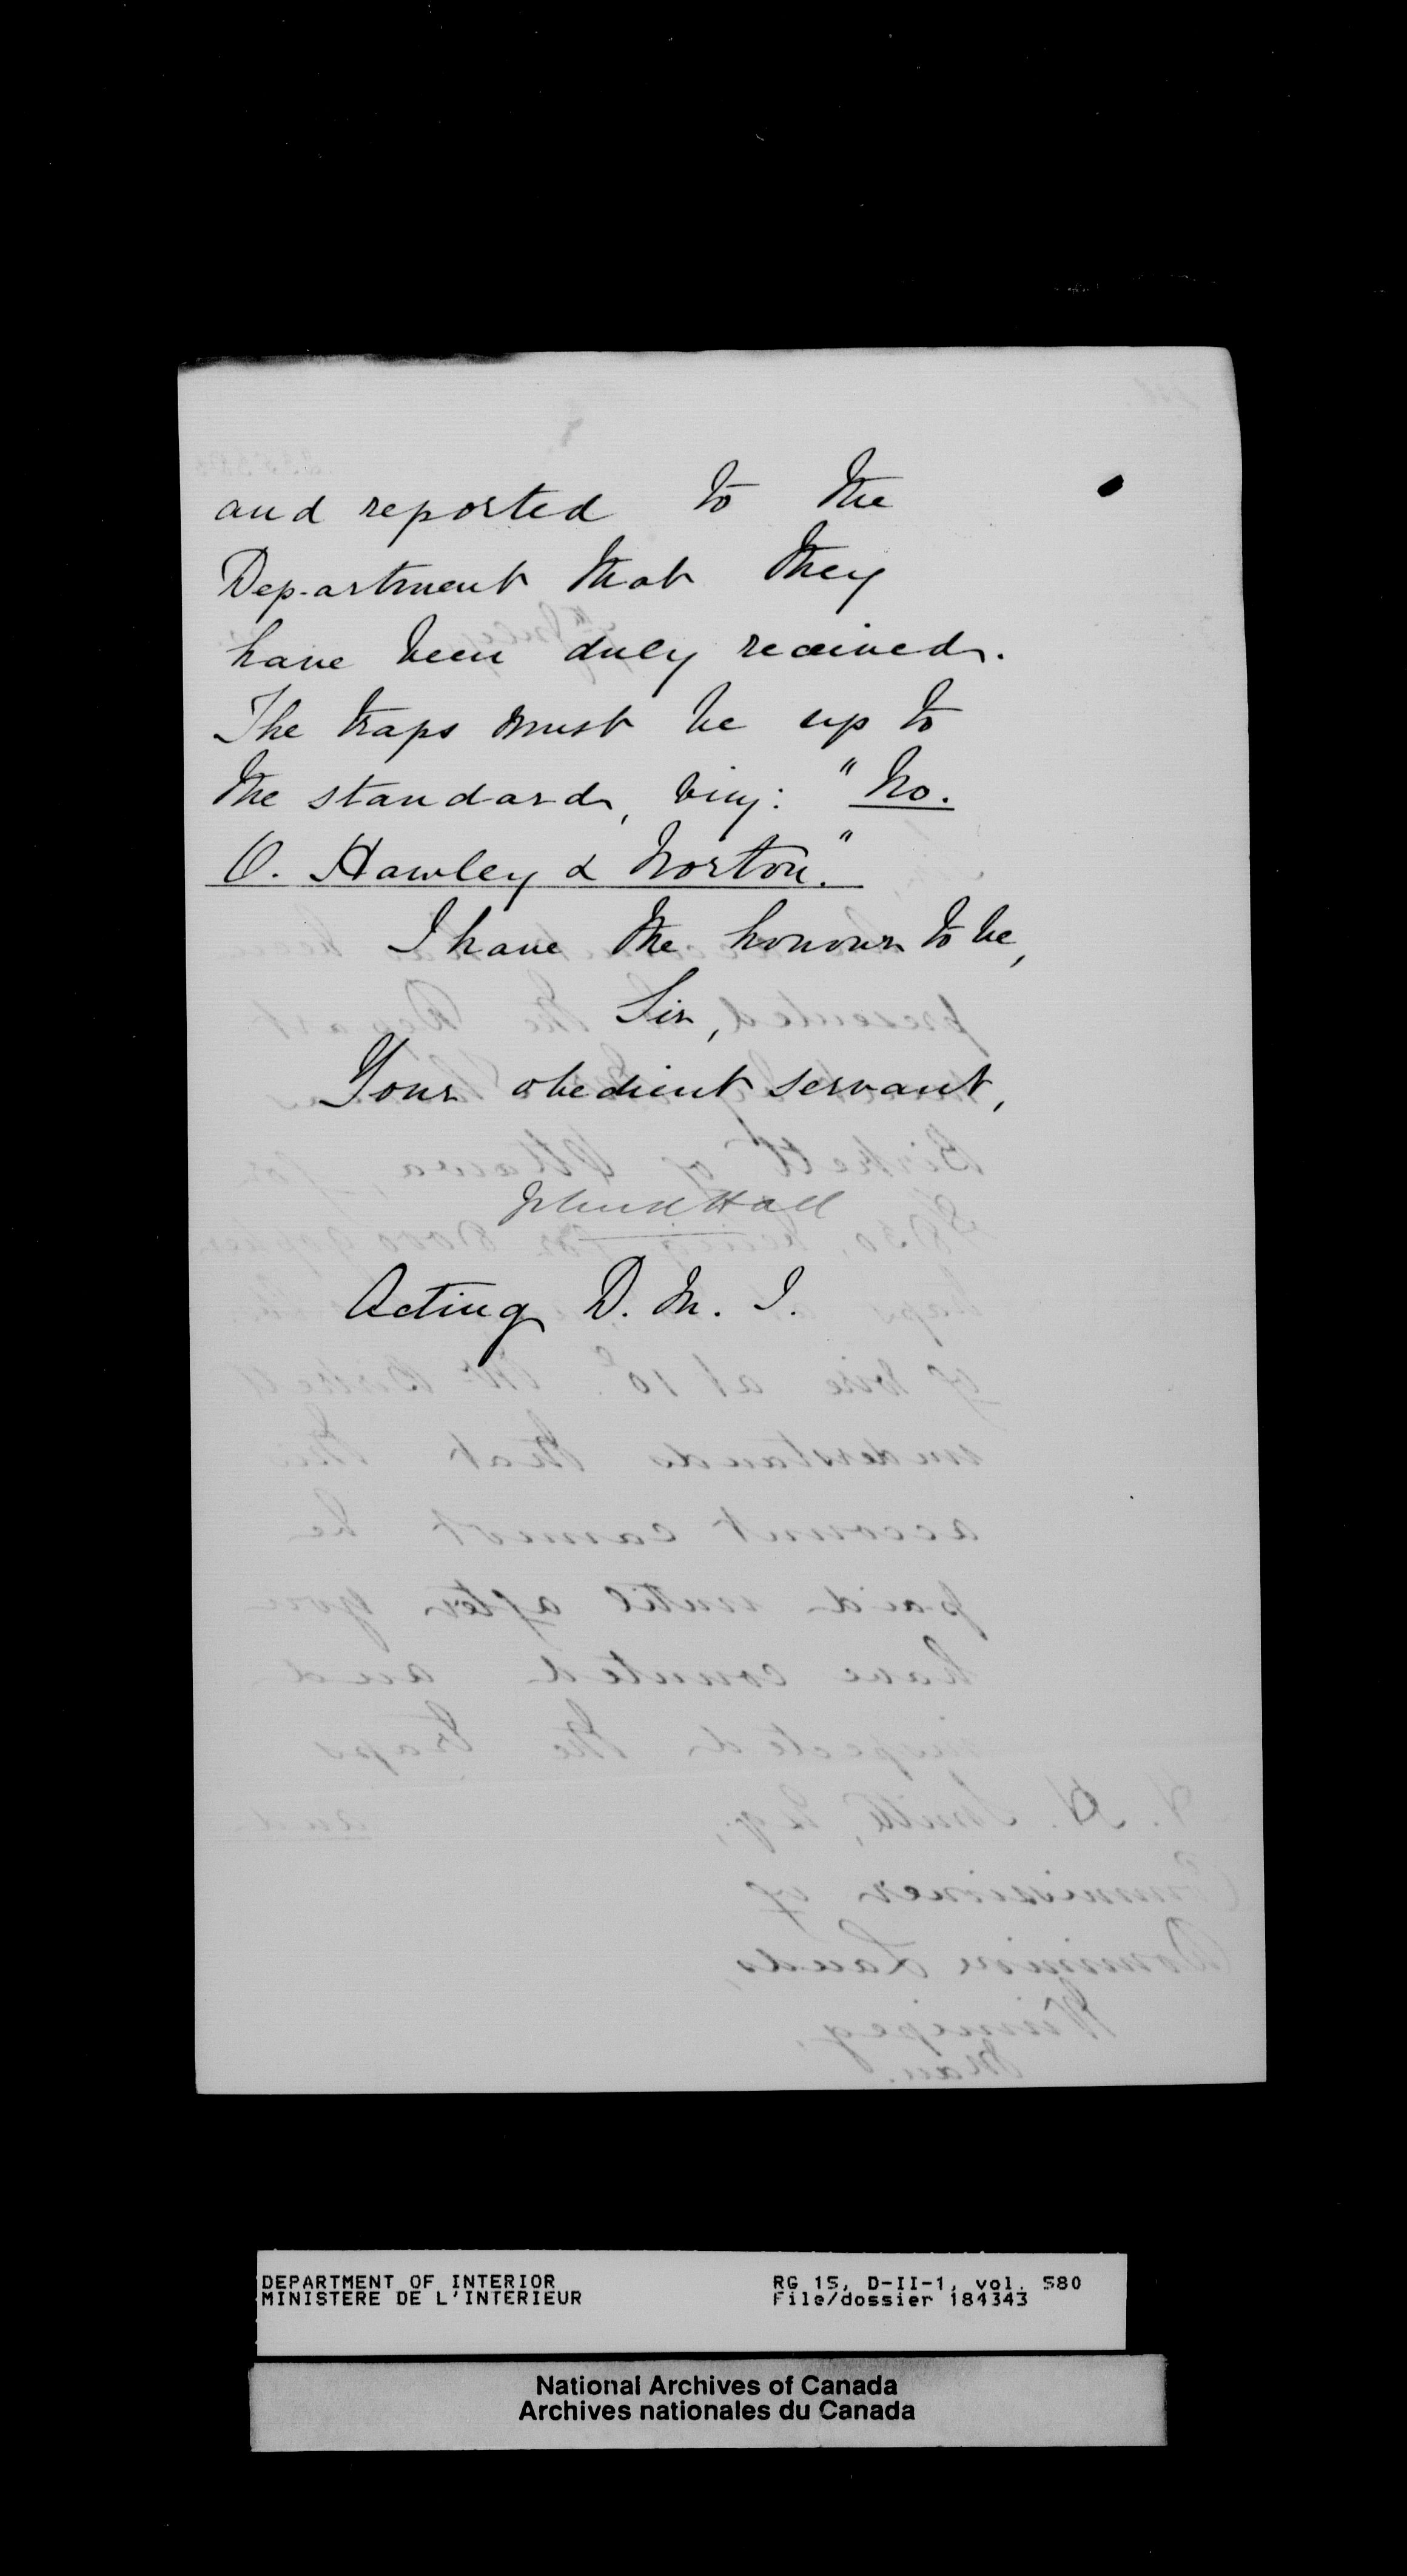 and reported to the
Department that they
have been duly received.
The traps must be up to
the standard, viz: "No.
O. Hawley & Norton."
I have the honour to be,
Sir,
Your obedient servant,
John R Hall
Acting D. M. I.
DEPARTMENT OF INTERIOR
MINISTERE DE L'INTERIEUR
RG 15, D-II-1, vol. 580
File/dossier 184343
National Archives of Canada
Archives nationales du Canada